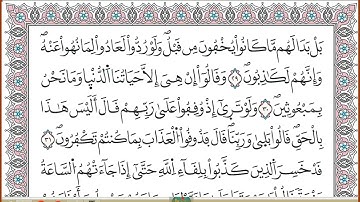 بَلْ بَدَا لَهُم مَّا كَانُوا۟ يُخْفُونَ مِن قَبْلُ ۖ وَلَوْ رُدُّوا۟ لَعَادُوا۟ لِمَا نُهُوا۟ عَنْهُ
وَإِنَّهُمْ لَكَـٰذِبُونَ ٢٨ وَقَالُوٓا۟ إِنْ هِىَ إِلَّا حَيَاتُنَا ٱلدُّنْيَا وَمَا نَحْنُ
بِمَبْعُوثِينَ ٢٩ وَلَوْ تَرَىٰٓ إِذْ وُقِفُوا۟ عَلَىٰ رَبِّهِمْ ۚ قَالَ أَلَيْسَ هَـٰذَا
بِٱلْحَقِّ ۚ قَالُوا۟ بَلَىٰ وَرَبِّنَا ۚ قَالَ فَذُوقُوا۟ ٱلْعَذَابَ بِمَا كُنتُمْ تَكْفُرُونَ ٣٠
قَدْ خَسِرَ ٱلَّذِينَ كَذَّبُوا۟ بِلِقَآءِ ٱللَّهِ ۖ حَتَّىٰٓ إِذَا جَآءَتْهُمُ ٱلسَّاعَةُ